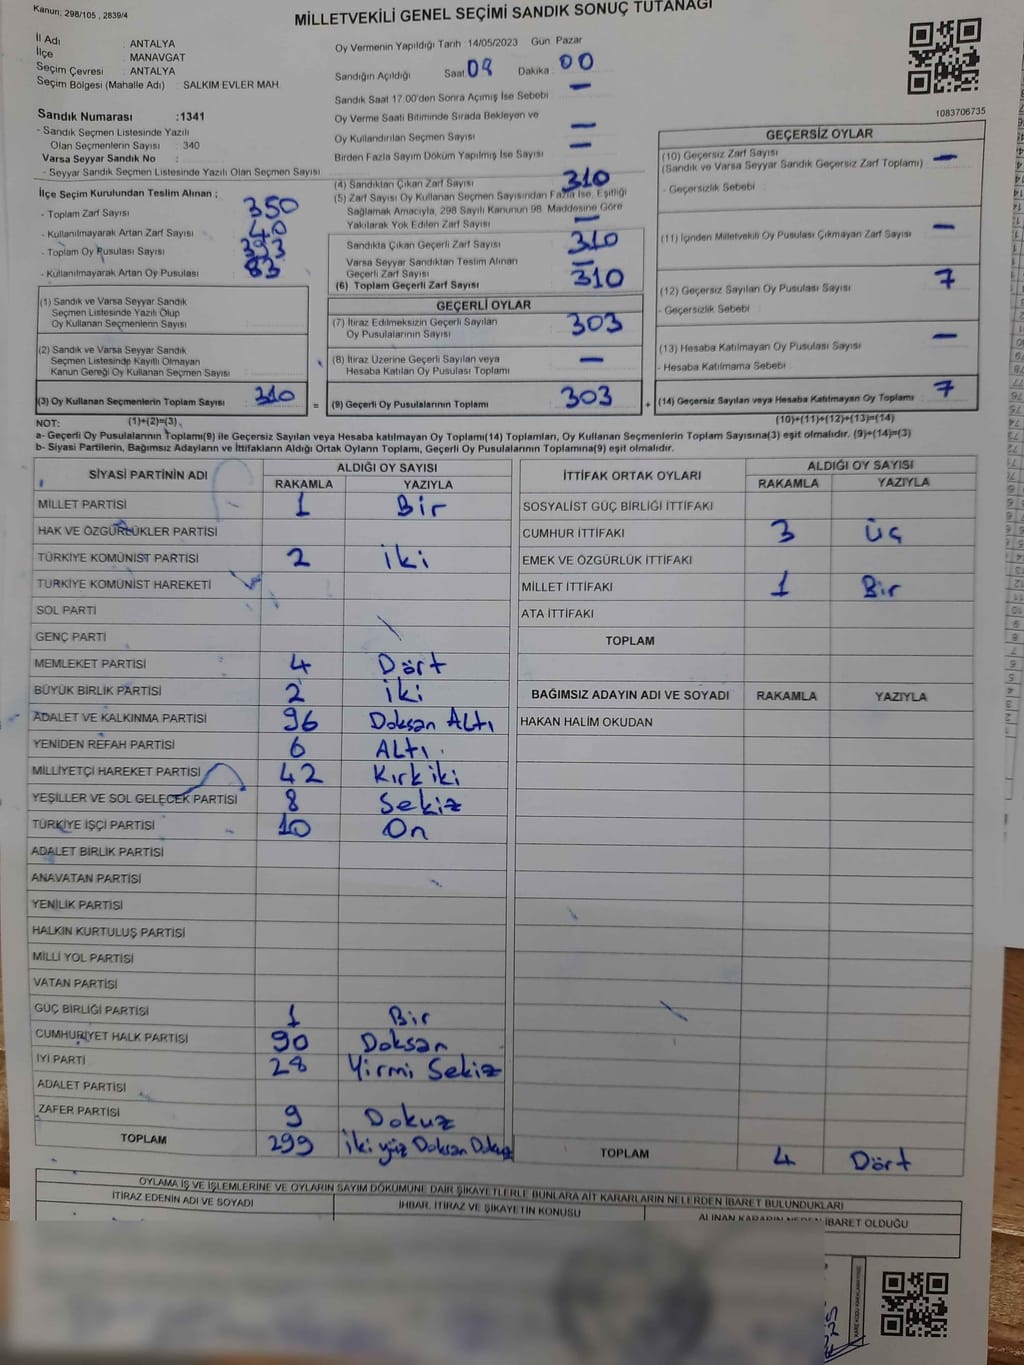 Kanun; 298/105 , 2839/4
MİLLETVEKİLİ GENEL SEÇİMİ SANDIK SONUÇ TUTANAĞI
İl Adı : ANTALYA
İlçe : MANAVGAT
Seçim Çevresi : ANTALYA
Seçim Bölgesi (Mahalle Adı) : SALKIM EVLER MAH
Oy Vermenin Yapıldığı Tarih :14/05/2023 Gün Pazar
Sandığın Açıldığı Saat 08 Dakika : 00
Sandık Saat 17.00'den Sonra Açılmış İse Sebebi –
Oy Verme Saati Bitiminde Sırada Bekleyen ve
Oy Kullandırılan Seçmen Sayısı –
Birden Fazla Sayım Döküm Yapılmış İse Sayısı –
1083706735
Sandık Numarası :1341
- Sandık Seçmen Listesinde Yazılı
Olan Seçmenlerin Sayısı : 340
Varsa Seyyar Sandık No :
- Seyyar Sandık Seçmen Listesinde Yazılı Olan Seçmen Sayısı
İlçe Seçim Kurulundan Teslim Alınan ;
- Toplam Zarf Sayısı 350
- Kullanılmayarak Artan Zarf Sayısı 40
- Toplam Oy Pusulası Sayısı 393
- Kullanılmayarak Artan Oy Pusulası 83
(1) Sandık ve Varsa Seyyar Sandık
Seçmen Listesinde Yazılı Olup
Oy Kullanan Seçmenlerin Sayısı
(2) Sandık ve Varsa Seyyar Sandık
Seçmen Listesinde Kayıtlı Olmayan
Kanun Gereği Oy Kullanan Seçmen Sayısı
(3) Oy Kullanan Seçmenlerin Toplam Sayısı 310 =
(1)+(2)=(3)
(4) Sandıktan Çıkan Zarf Sayısı 310
(5) Zarf Sayısı Oy Kullanan Seçmen Sayısından Fazla İse, Eşitliği
Sağlamak Amacıyla, 298 Sayılı Kanunun 98. Maddesine Göre
Yakılarak Yok Edilen Zarf Sayısı –
Sandıkta Çıkan Geçerli Zarf Sayısı 310
Varsa Seyyar Sandıktan Teslim Alınan
Geçerli Zarf Sayısı –
(6) Toplam Geçerli Zarf Sayısı 310
GEÇERLİ OYLAR
(7) İtiraz Edilmeksizin Geçerli Sayılan
Oy Pusulalarının Sayısı 303
(8) İtiraz Üzerine Geçerli Sayılan veya
Hesaba Katılan Oy Pusulası Toplamı –
(9) Geçerli Oy Pusulalarının Toplamı 303 +
GEÇERSİZ OYLAR
(10) Geçersiz Zarf Sayısı –
(Sandık ve Varsa Seyyar Sandık Geçersiz Zarf Toplamı)
- Geçersizlik Sebebi :
(11) İçinden Milletvekili Oy Pusulası Çıkmayan Zarf Sayısı –
(12) Geçersiz Sayılan Oy Pusulası Sayısı 7
- Geçersizlik Sebebi :
(13) Hesaba Katılmayan Oy Pusulası Sayısı –
- Hesaba Katılmama Sebebi :
(14) Geçersiz Sayılan veya Hesaba Katılmayan Oy Toplamı 7
(10)+(11)+(12)+(13)=(14)
NOT:
a- Geçerli Oy Pusulalarının Toplamı(9) ile Geçersiz Sayılan veya Hesaba katılmayan Oy Toplamı(14) Toplamları, Oy Kullanan Seçmenlerin Toplam Sayısına(3) eşit olmalıdır. (9)+(14)=(3)
b- Siyasi Partilerin, Bağımsız Adayların ve İttifakların Aldığı Ortak Oyların Toplamı, Geçerli Oy Pusulalarının Toplamına(9) eşit olmalıdır.
SİYASİ PARTİNİN ADI ALDIĞI OY SAYISI
RAKAMLA YAZIYLA
MİLLET PARTİSİ 1 Bir
HAK VE ÖZGÜRLÜKLER PARTİSİ
TÜRKİYE KOMÜNİST PARTİSİ 2 iki
TÜRKİYE KOMÜNİST HAREKETİ
SOL PARTİ
GENÇ PARTİ
MEMLEKET PARTİSİ 4 Dört
BÜYÜK BİRLİK PARTİSİ 2 iki
ADALET VE KALKINMA PARTİSİ 96 Doksan Altı
YENİDEN REFAH PARTİSİ 6 Altı
MİLLİYETÇİ HAREKET PARTİSİ 42 Kırk iki
YEŞİLLER VE SOL GELECEK PARTİSİ 8 Sekiz
TÜRKİYE İŞÇİ PARTİSİ 10 On
ADALET BİRLİK PARTİSİ
ANAVATAN PARTİSİ
YENİLİK PARTİSİ
HALKIN KURTULUŞ PARTİSİ
MİLLİ YOL PARTİSİ
VATAN PARTİSİ
GÜÇ BİRLİĞİ PARTİSİ 1 Bir
CUMHURİYET HALK PARTİSİ 90 Doksan
İYİ PARTİ 28 Yirmi Sekiz
ADALET PARTİSİ
ZAFER PARTİSİ 9 Dokuz
TOPLAM 299 İki yüz Doksan Dokuz
İTTİFAK ORTAK OYLARI ALDIĞI OY SAYISI
RAKAMLA YAZIYLA
SOSYALİST GÜÇ BİRLİĞİ İTTİFAKI
CUMHUR İTTİFAKI 3 Üç
EMEK VE ÖZGÜRLÜK İTTİFAKI
MİLLET İTTİFAKI 1 Bir
ATA İTTİFAKI
TOPLAM
BAĞIMSIZ ADAYIN ADI VE SOYADI RAKAMLA YAZIYLA
HAKAN HALİM OKUDAN
TOPLAM 4 Dört
OYLAMA İŞ VE İŞLEMLERİNE VE OYLARIN SAYIM DÖKÜMÜNE DAİR ŞİKAYETLERLE BUNLARA AİT KARARLARIN NELERDEN İBARET BULUNDUKLARI
İTİRAZ EDENİN ADI VE SOYADI İHBAR, İTİRAZ VE ŞİKAYETİN KONUSU ALINAN KARARIN NEDEN İBARET OLDUĞU